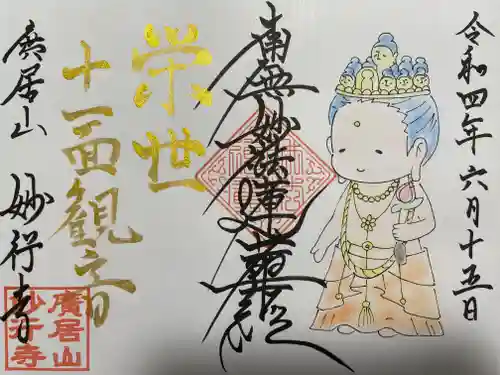 令和四年六月十五日
南無妙法蓮華経
栄世
十一面観音
廣居山 妙行寺
廣居山
妙行寺